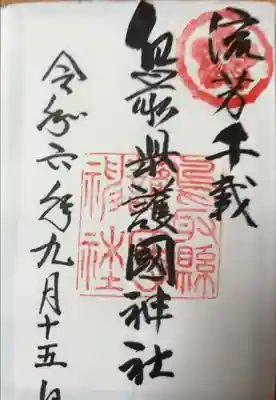 流芳千載
鳥取県護國神社
令和六年九月十五日
鳥取縣
護國
神社